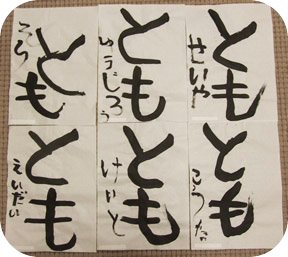 とも
せいや
とも
ゆうじろう
とも
そら
とも
こうた
とも
けいと
とも
えいだい